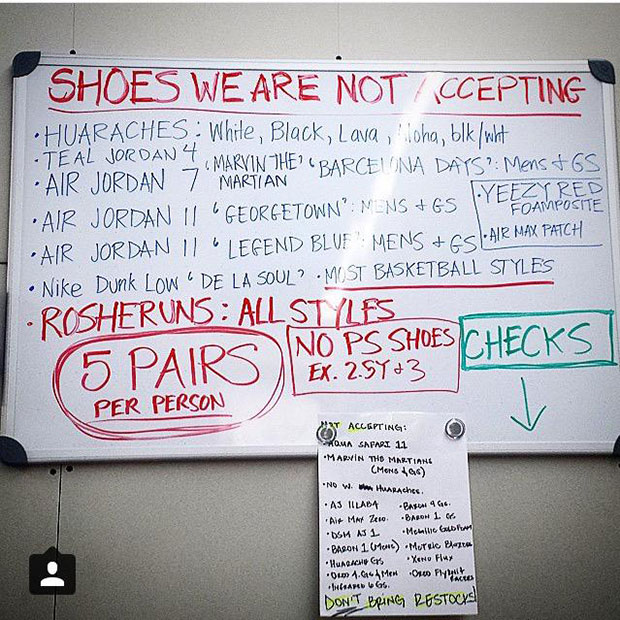 SHOES WE ARE NOT ACCEPTING
• HUARACHES: White, Black, Lava, Aloha, blk/wht
• TEAL JORDAN 4
• AIR JORDAN 7 "MARVIN THE MARTIAN" "BARCELONA DAYS": Mens + GS
• AIR JORDAN 11 "GEORGETOWN": MENS + GS
• AIR JORDAN 11 "LEGEND BLUE": MENS + GS
• YEEZY RED
FOAMPOSITE
• AIR MAX PATCH
• Nike Dunk Low "DE LA SOUL" • MOST BASKETBALL STYLES
• ROSHERUNS: ALL STYLES
5 PAIRS
PER PERSON
NO PS SHOES
EX. 2.5Y + 3
CHECKS
NOT ACCEPTING:
• AQUA SAFARI 11
• MARVIN THE MARTIANS
(MENS & GS)
• NO W. HUARACHES.
• AJ 11LAB4
• AIR MAX ZERO.
• DSM AJ 1
• BARON 1 (MENS)
• HUARACHE GS
• OREO 4. GS & MEN
• INFRARED 6 GS.
• BARON 9 GS.
• BARON 1 GS
• METALLIC GOLD FOAM
• XENO FLUX
• OREO FLYKNIT
RACERS
DON'T BRING RESTOCKS!